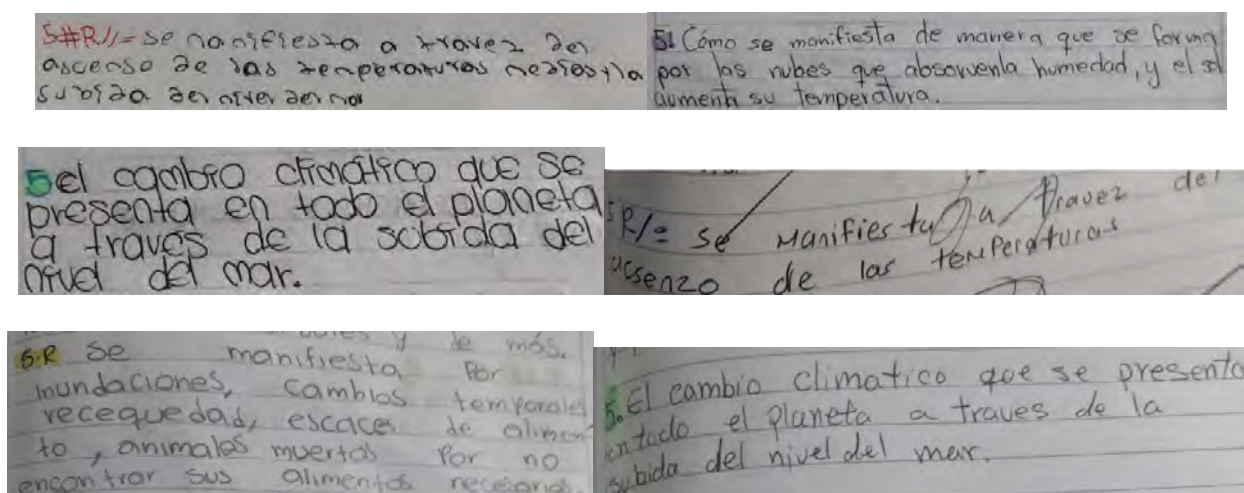 5#R//= se manifiesta a travez del
ascenso de las temperaturas medias y la
subida del nivel del mar
5! Cómo se manifiesta de manera que se forma
por las nubes que absorven la humedad, y el sol
aumenta su temperatura.
5 el cambio climático que se
presenta en todo el planeta
a traves de la subida del
nivel del mar.
R/= se manifiesta a travez del
acsenzo de las temperaturas
y de más.
5.R se manifiesta Por
inundaciones, cambios temporales
recequedad, escaces de alimen
to, animales muertos Por no
encontrar sus alimentos necesarios.
5. El cambio climatico que se presenta
en todo el planeta a traves de la
subida del nivel del mar.